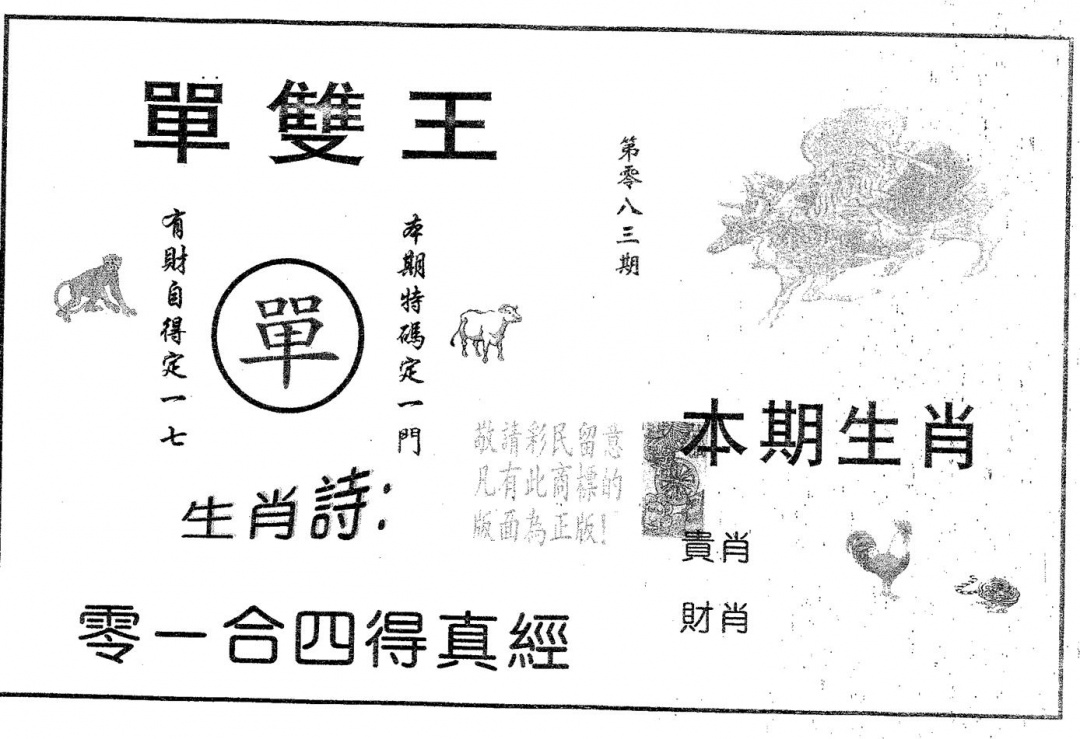 單雙王
第零八三期
本期特碼定一門
單
有財自得定一七
敬請彩民留意
凡有此商標的
版面為正版!
生肖詩:
零一合四得真經
本期生肖
貴肖
財肖